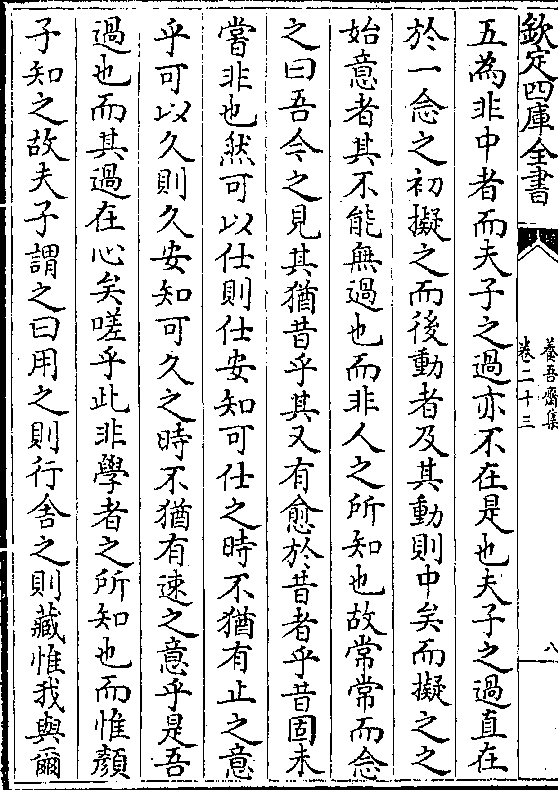 欽定四庫全書
養吾齋集
卷二十三
八
五為非中者而夫子之過亦不在是也夫子之過直在
於一念之初擬之而後動者及其動則中矣而擬之之
始意者其不能無過也而非人之所知也故常常而念
之曰吾今之見其猶昔乎其又有愈於昔者乎昔固未
嘗非也然可以仕則仕安知可仕之時不猶有止之意
乎可以久則久安知可久之時不猶有速之意乎是吾
過也而其過在心矣嗟乎此非學者之所知也而惟顏
子知之故夫子謂之曰用之則行舍之則藏惟我與爾